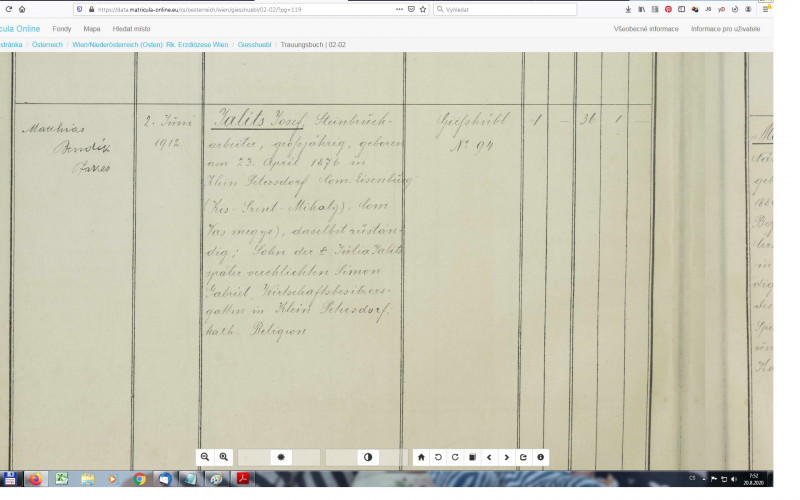 https://data.matricula-online.eu/cs/oesterreich/wien/giesshuebl/02-02/?pg=119
Vyhledat
cula Online
Fondy
Mapa
Hledat místo
Všeobecné informace
Informace pro uživatele
stránka / Österreich / Wien/Niederösterreich (Osten): Rk. Erzdiözese Wien / Giesshuebl / Trauungsbuch | 02-02
Matthias
Bendix
Pfarrer
2. Juni
1912
Jalits Josef, Steinbruch-
arbeiter, großjährig, geboren
am 23. April 1876 in
Klein Petersdorf Com. Eisenburg
(Kis-Szent-Mihaly). Com
Vas megye), daselbst zustän-
dig; Sohn der ‡ Julia Jalits
später verehlichten Simon
Gabriel, Wirtschaftsbesitzers-
gattin in Klein Petersdorf,
kath. Religion
Gießhübl
No 94
1 — 36 1 —
CS
7:52
20.8.2020